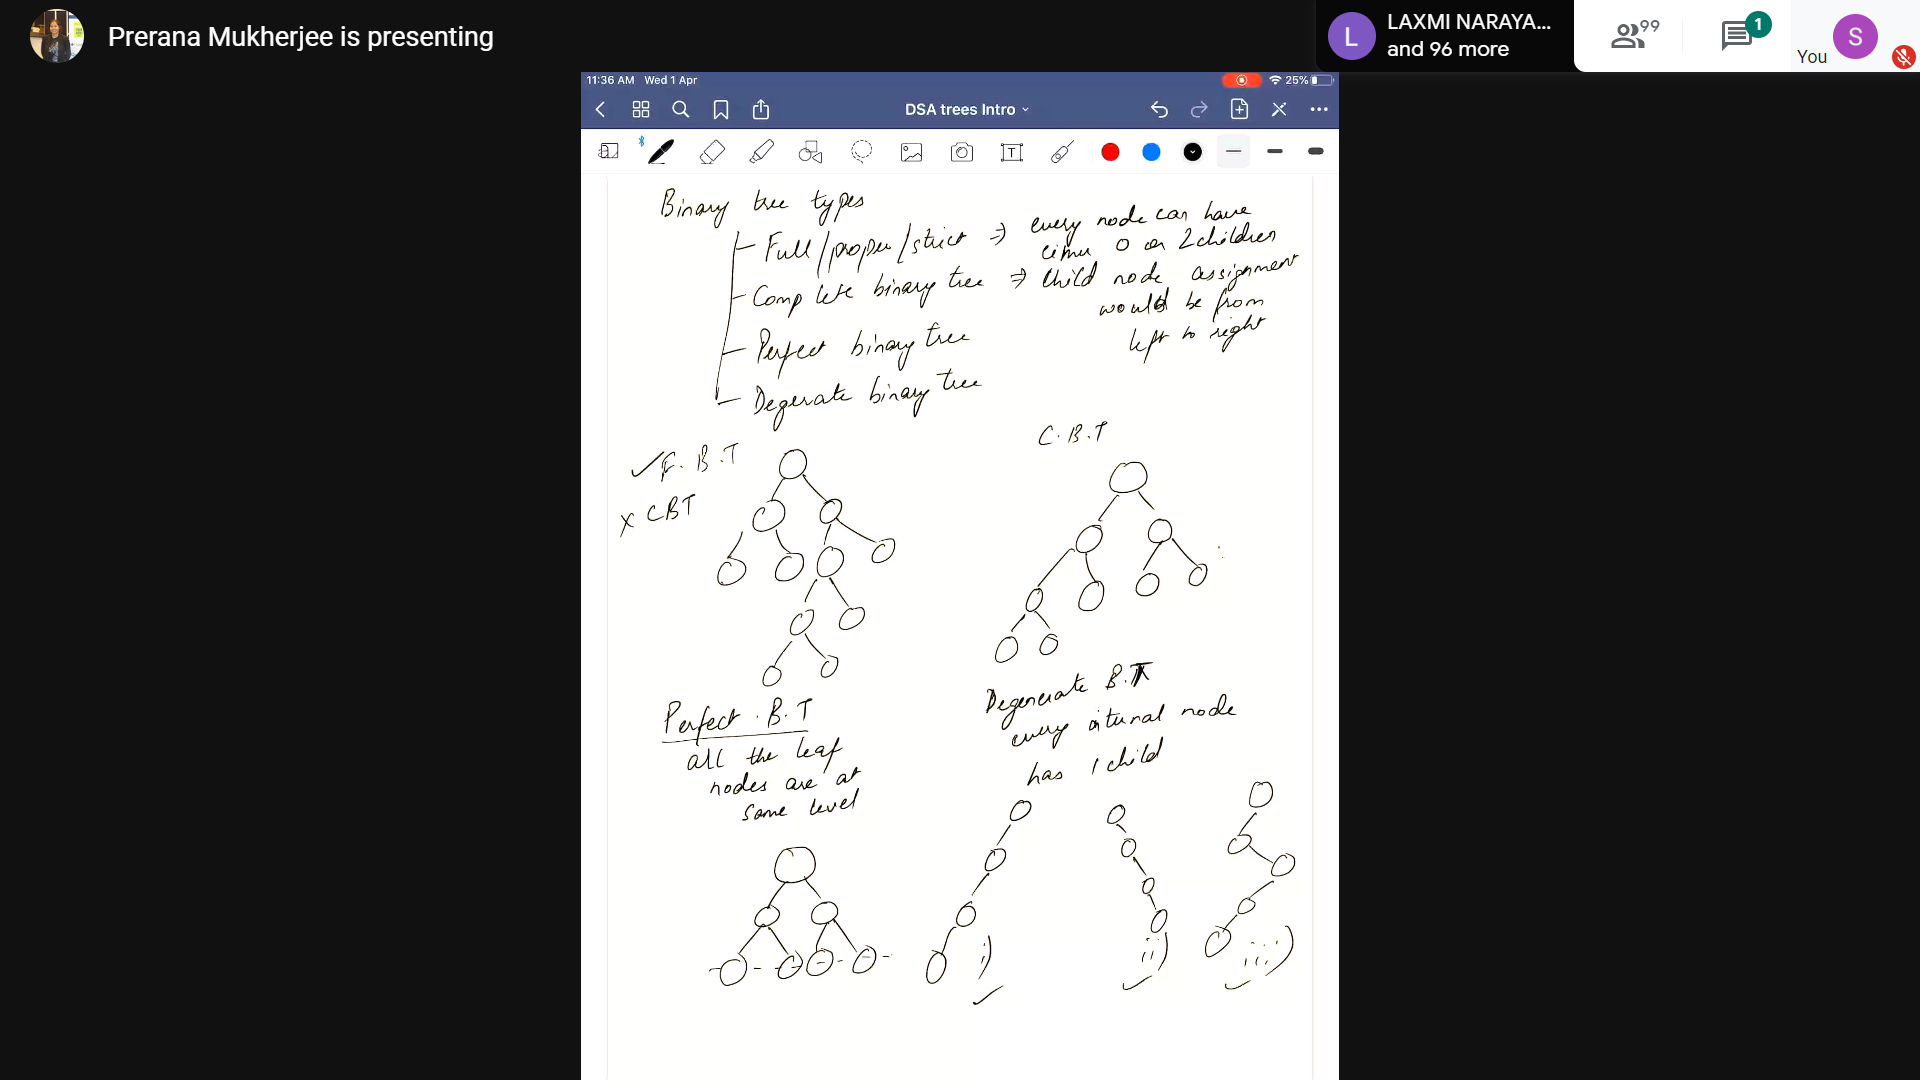 Prerana Mukherjee is presenting
L
LAXMI NARAYA...
and 96 more
99
1
You
S
11:36 AM Wed 1 Apr
25%
DSA trees Intro
Binary tree types
Full/proper/strict ⇒ every node can have
either 0 or 2 children
Complete binary tree ⇒ Child node assignment
would be from
left to right
Perfect binary tree
Degerate binary tree
✓ F.B.T
x CBT
C.B.T
Perfect.B.T
all the leaf
nodes are at
same level
Degenerate B.T
every internal node
has 1 child
i)
ii)
iii)